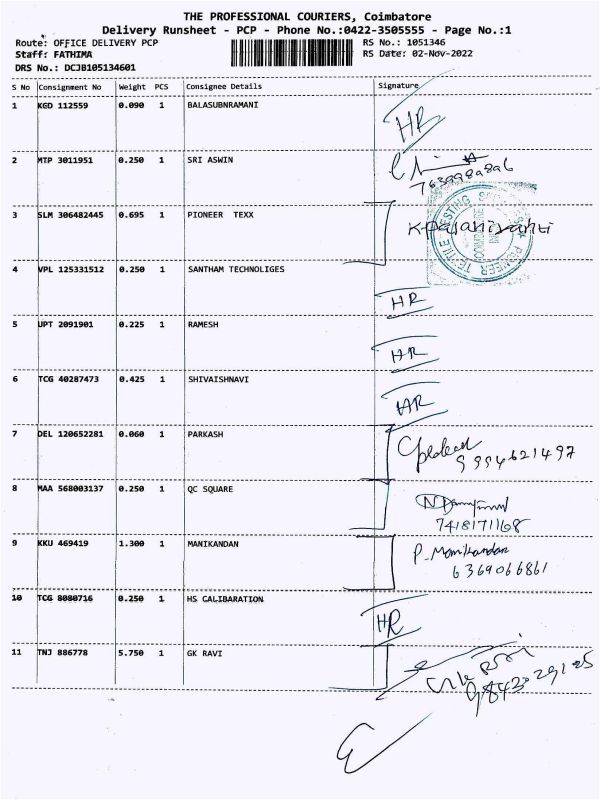 THE PROFESSIONAL COURIERS, Coimbatore
Delivery Runsheet - PCP - Phone No.:0422-3505555 - Page No.:1
Route: OFFICE DELIVERY PCP RS No.: 1051346
Staff: FATHIMA RS Date: 02-Nov-2022
DRS No.: DCJB105134601
S No Consignment No Weight PCS Consignee Details Signature
1 KGD 112559 0.090 1 BALASUBNRAMANI HR
2 MTP 3011951 0.250 1 SRI ASWIN
3 SLM 306482445 0.695 1 PIONEER TEXX
4 VPL 125331512 0.250 1 SANTHAM TECHNOLIGES HR
5 UPT 2091901 0.225 1 RAMESH HR
6 TCG 40287473 0.425 1 SHIVAISHNAVI HR
7 DEL 120652281 0.060 1 PARKASH
9994621497
8 MAA 568003137 0.250 1 QC SQUARE
7418171168
9 KKU 469419 1.300 1 MANIKANDAN P. Manikandan
6369066861
10 TCG 8080716 0.250 1 HS CALIBARATION HR
11 TNJ 886778 5.750 1 GK RAVI
9843029125